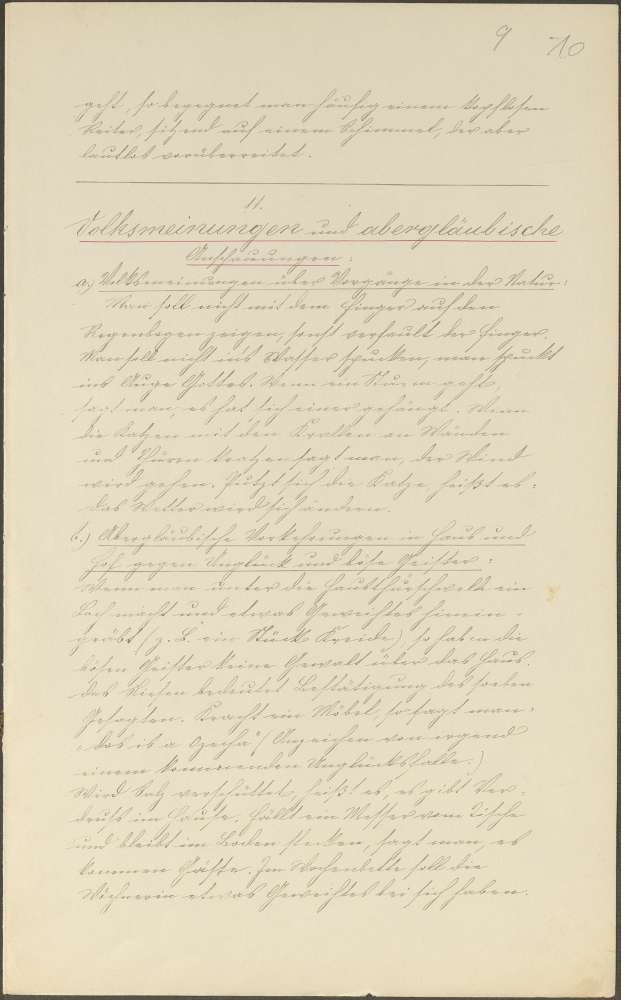 9 10
geht, so begegnet man häufig einem kopflosen
Reiter, sitzend auf einem Schimmel, der aber
lautlos vorüberreitet.
11.
Volksmeinungen und abergläubische
Anschauungen:
a.) Volksmeinungen über Vorgänge in der Natur:
Man soll nicht mit dem Finger auf den
Regenbogen zeigen, sonst verfault der Finger.
Man soll nicht ins Wasser spucken, man spuckt
ins Auge Gottes. Wenn ein Sturm geht,
sagt man, es hat sich einer gehängt. Wenn
die Katzen mit den Krallen an Wänden
und Thüren kratzen sagt man, der Wind
wird gehen. Putzt sich die Katze, heißt es:
das Wetter wird sich ändern.
b.) Abergläubische Vorkehrungen in Haus und
Hof gegen Unglück und böse Geister:
Wenn man unter die Hausthürschwelle ein
Loch macht und etwas Geweihtes hinein-
gräbt (z. B. ein Stück Kreide) so haben die
bösen Geister keine Gewalt über das Haus.
Das Niesen bedeutet Bestätigung des soeben
Gesagten. Kracht ein Möbel, so sagt man:
das is a Ozecha" (Anzeichen von irgend
einem kommenden Unglücksfalle.)
Wird Salz verschüttet, heißt es, es gibt Ver-
druß im Hause. Fällt ein Messer vom Tische
und bleibt im Boden stecken, sagt man, es
kommen Gäste. Im Wochenbette soll die
Wöchnerin etwas Geweihtes bei sich haben.